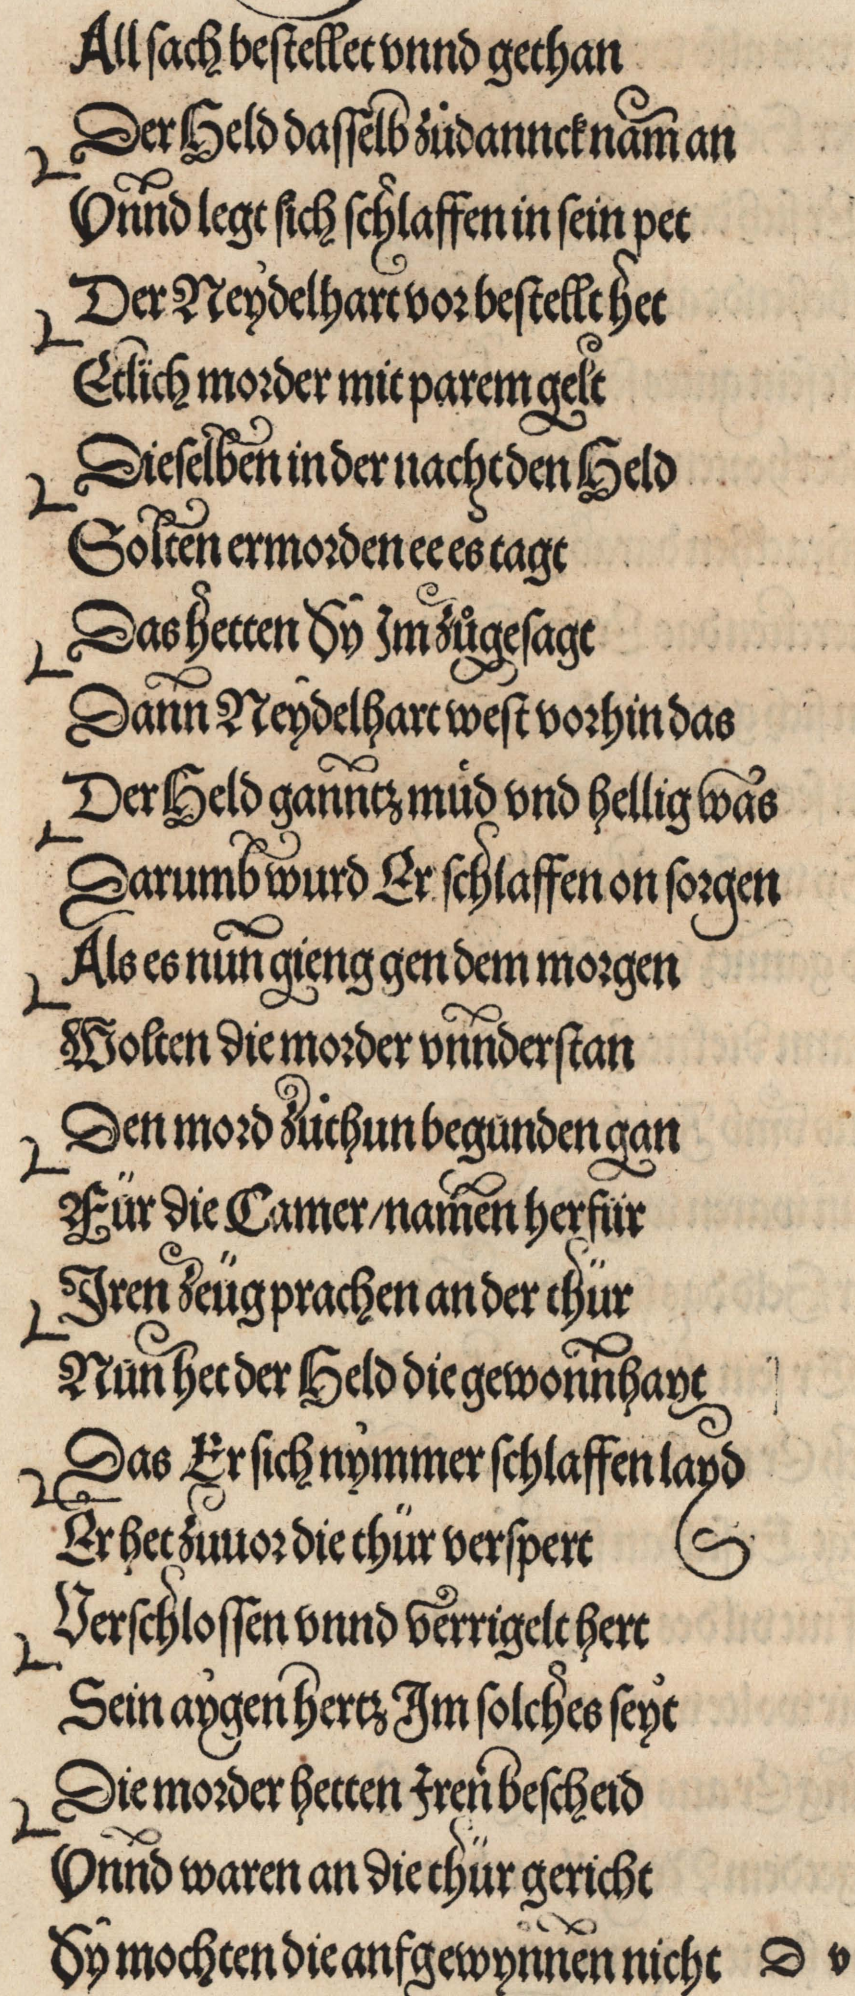 All sach bestellet vnnd gethan
Der Held dasselb zůdannck nam̄ an
Vnnd legt sich schlaffen in sein pet
Der Neydelhart vor bestellt het
Etlich morder mit parem gelt
Dieselben in der nacht den Held
Solten ermorden ee es tagt
Das hetten Sy Im zůgesagt
Dann Neydelhart west vorhin das
Der Held ganntz müd vnd hellig was
Darumb wurd Er schlaffen on sorgen
Als es nun gieng gen dem morgen
Wolten die morder vnnderstan
Den mord zůthun begunden gan
Für die Camer/namen herfür
Iren zeüg prachen an der thür
Nun het der Held die gewonnhayt
Das Er sich nymmer schlaffen layd
Er het zuuor die thür verspert
Verschlossen vnnd verrigelt hert
Sein aygen hertz Im solches seyt
Die morder hetten Iren bescheid
Vnnd waren an die thür gericht
Sy mochten die aufgewynnen nicht D v